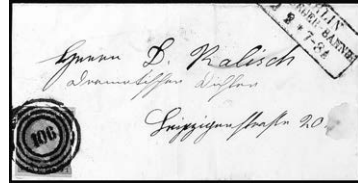 LIN
8 * 7-8½
Herrn D. Kalisch
dramatischer Dichter
Leipzigerstraße 20.
106